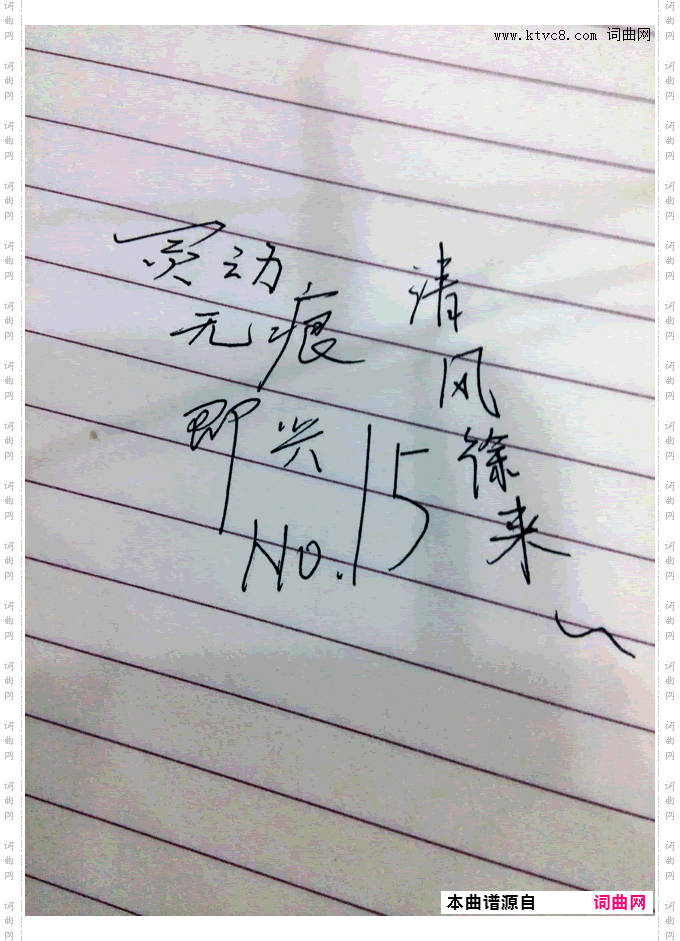 www.ktvc8.com 词曲网
灵动
无痕
即兴
No.15
清风徐来~
本曲谱源自 词曲网